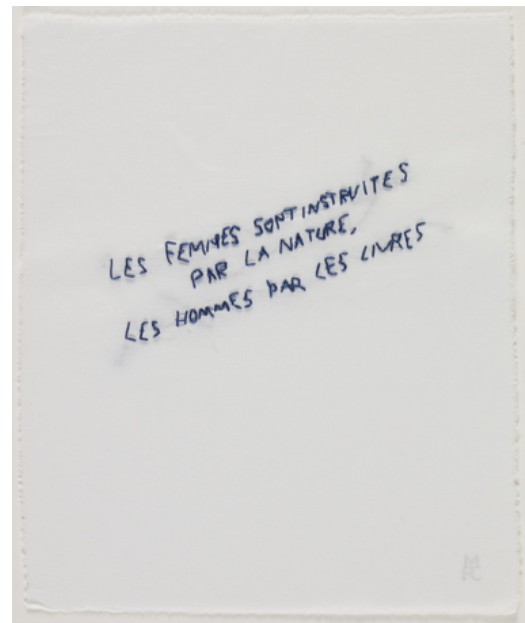 LES FEMMES SONT INSTRUITES
PAR LA NATURE,
LES HOMMES PAR LES LIVRES